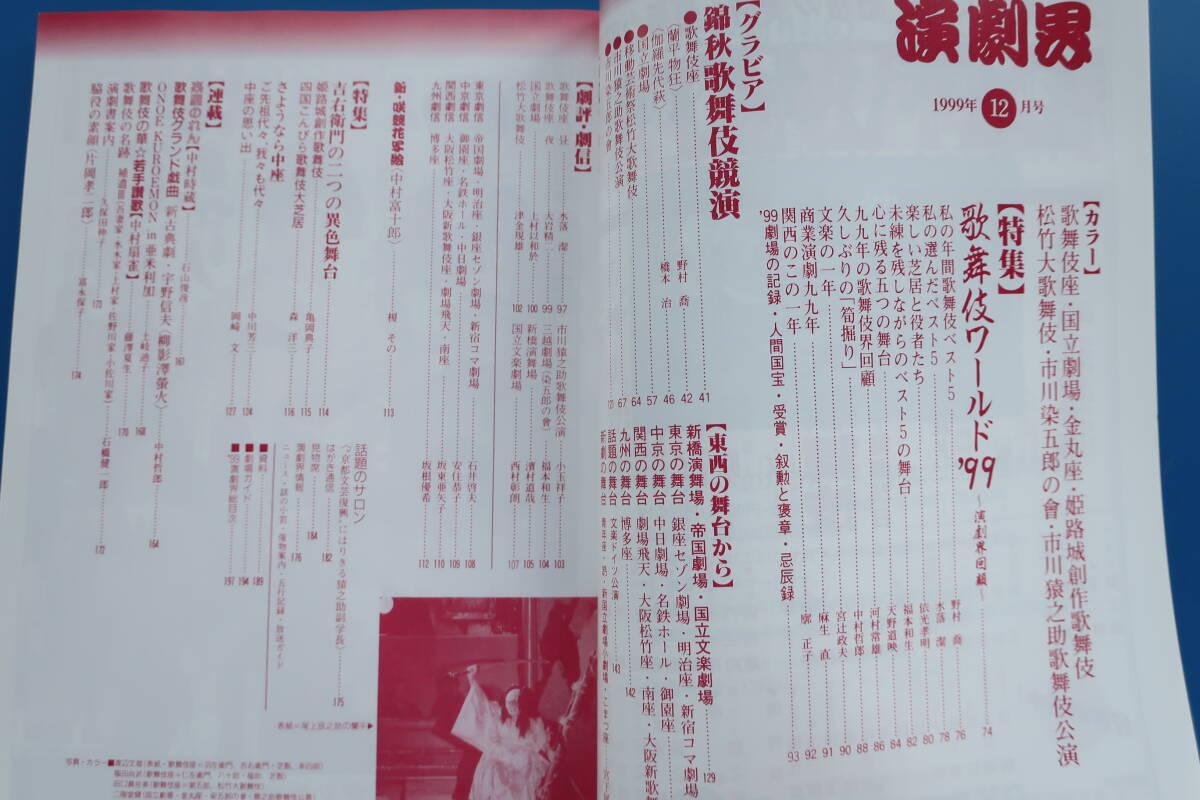 演劇界
1999年12月号
【カラー】
歌舞伎座・国立劇場・金丸座・姫路城創作歌舞伎
松竹大歌舞伎・市川染五郎の會・市川猿之助歌舞伎公演
【特集】
歌舞伎ワールド'99 〜演劇界回顧〜 74
私の年間歌舞伎ベスト5 野村 喬 76
私の選んだベスト5 水落 潔 78
楽しい芝居と役者たち 依光孝明 80
未練を残しながらのベスト5の舞台 福本和生 82
心に残る五つの舞台 天野道映 84
九九年の歌舞伎界回顧 河村常雄 86
久しぶりの「筍掘り」 中村哲郎 88
文楽の一年 宮辻政夫 90
商業演劇九九年 麻生 直 91
関西のこの一年 廓 正子 92
'99劇場の記録・人間国宝・受賞・叙勲と褒章・忌辰録 93
【グラビア】
錦秋歌舞伎競演
●歌舞伎座 41
(蘭平物狂) 野村 喬 42
(伽羅先代萩) 橋本 治 46
●国立劇場 57
●移動芸術祭松竹大歌舞伎 64
●市川猿之助歌舞伎公演 67
●市川染五郎の會
【東西の舞台から】
新橋演舞場・帝国劇場・国立文楽劇場 129
東京の舞台 銀座セゾン劇場・明治座・新宿コマ劇場
中京の舞台 中日劇場・名鉄ホール・御園座
関西の舞台 劇場飛天・大阪松竹座・南座・大阪新歌
九州の舞台 博多座 142
話題の舞台 文楽ドイツ公演 143
新劇の舞台
【劇評・劇信】
歌舞伎座 昼 水落 潔 97
歌舞伎座 夜 大岩精二 99
国立劇場 上村以和於 100
松竹大歌舞伎 津金規雄 102
市川猿之助歌舞伎公演 小玉祥子 103
三越劇場(染五郎の會) 福本和生 104
新橋演舞場 濱村道哉 105
国立文楽劇場 西村彰朗 107
東京劇信 帝国劇場・明治座・銀座セゾン劇場・新宿コマ劇場 石井啓夫 108
中京劇信 御園座・名鉄ホール・中日劇場 安住恭子 109
関西劇信 大阪松竹座・大阪新歌舞伎座・劇場飛天・南座 坂東亜矢子 110
九州劇信 博多座 坂根優希 112
新・咲競花写絵(中村富十郎) 榎 その 113
【特集】
吉右衛門の二つの異色舞台 114
姫路城創作歌舞伎 亀岡典子 115
四国こんぴら歌舞伎大芝居 森 洋三 116
さようなら中座
ご先祖代々、我々も代々 中川芳三 124
中座の思い出 岡崎 文 127
【連載】
芸譜のれん【中村時蔵】 石山俊彦 161
歌舞伎グランド戯曲 新古典劇・宇野信夫(柳影澤蛍火) 中村哲郎 164
ONOE KUROEMON in 亜米利加 土岐迪子 168
歌舞伎の華☆若手讃歌【中村扇雀】 藤澤夏生 170
歌舞伎の名跡 補遺Ⅲ(吾妻家・水木家・上村家・佐野川家・小佐川家) 石橋健一郎 172
演劇書案内 久保田伸子 173
脇役の素顔(片岡孝二郎) 富永保子 174
話題のサロン
〈“京都文芸復興”にはりきる猿之助副学長〉 175
はがき通信 182
見物席 184
演劇界情報 176
ニュース・談の小箱・催物案内・五行記録・放送ガイド
■資料 189
■劇場ガイド 194
■'99演劇界総目次 197
表紙=尾上辰之助の蘭平▶
写真・カラー■渡辺文雄
福田尚武
田口真佐美
二階堂健